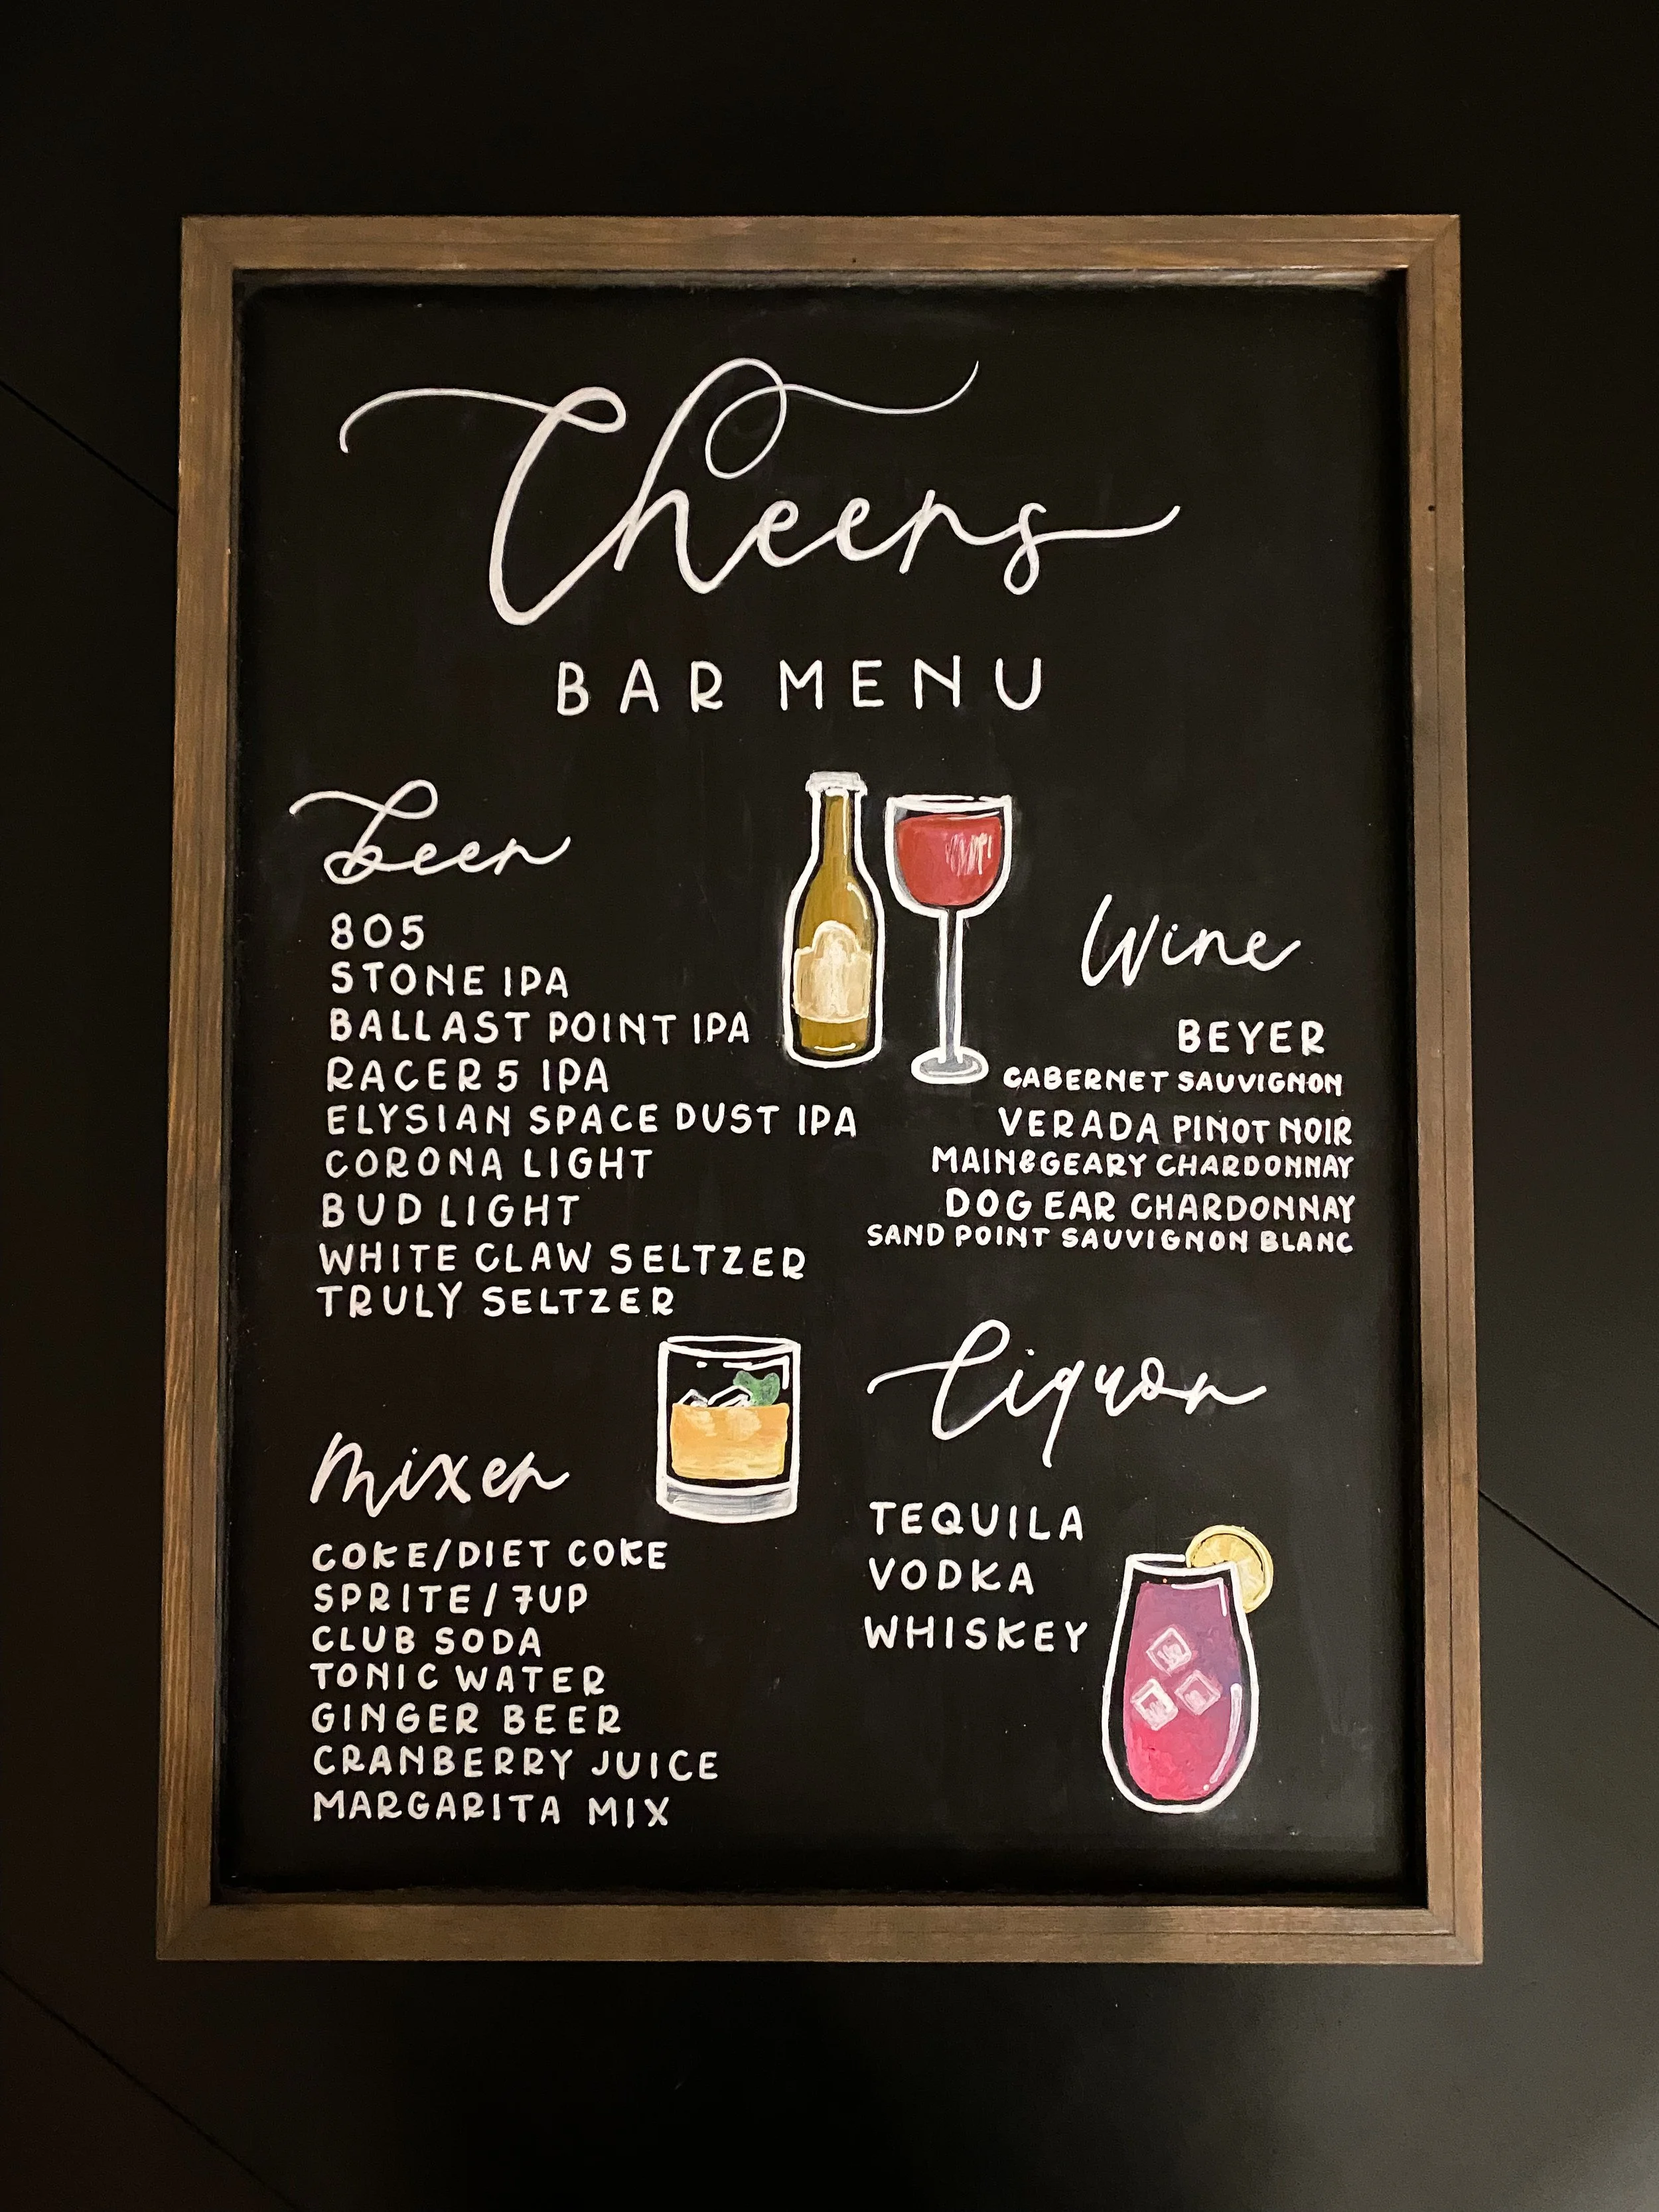 Cheers
BAR MENU
beer
805
STONE IPA
BALLAST POINT IPA
RACER 5 IPA
ELYSIAN SPACE DUST IPA
CORONA LIGHT
BUD LIGHT
WHITE CLAW SELTZER
TRULY SELTZER
Wine
BEYER
CABERNET SAUVIGNON
VERADA PINOT NOIR
MAIN&GEARY CHARDONNAY
DOG EAR CHARDONNAY
SAND POINT SAUVIGNON BLANC
Mixer
COKE/DIET COKE
SPRITE / 7UP
CLUB SODA
TONIC WATER
GINGER BEER
CRANBERRY JUICE
MARGARITA MIX
Liquor
TEQUILA
VODKA
WHISKEY